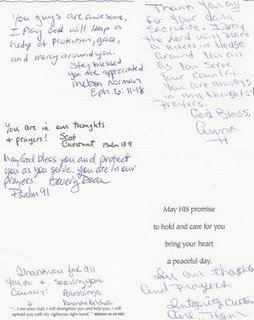 You guys are awesome,
I pray God will keep a
hedge of protection, grace,
and mercy around you.
Stay blessed
you are appreciated
Melissa Norman
Eph. 6:11-18
Thank you
for your daily
Sacrifice. I pray
the Lord will place
a protective Hedge
Around you
as you Serve
your Country.
You are always
in my thoughts &
Prayers.
God Bless,
You are in our thoughts
& prayers! Scot
Chestnut Psalm 139
May God bless you and protect
you as you serve. You are in our
prayers. Beverly
Psalm 91
May HIS promise
to hold and care for you
bring your heart
a peaceful day.
Thank you for all
You do &
Country! Blessings
"...I am your God. I will strengthen you and help you; I will
uphold you with My righteous right hand." ISAIAH 41:10 NIV
In our thoughts
and prayers
Integrity Custom